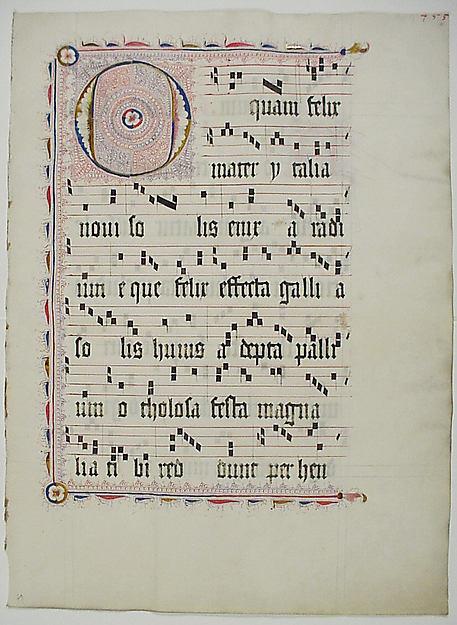 O quam felix
mater ytalia
novi so lis enix a radi
um eque felix effecta galli a
so lis huius a depta palli
um o tholosa festa magna
lia ti bi red dunt per hen